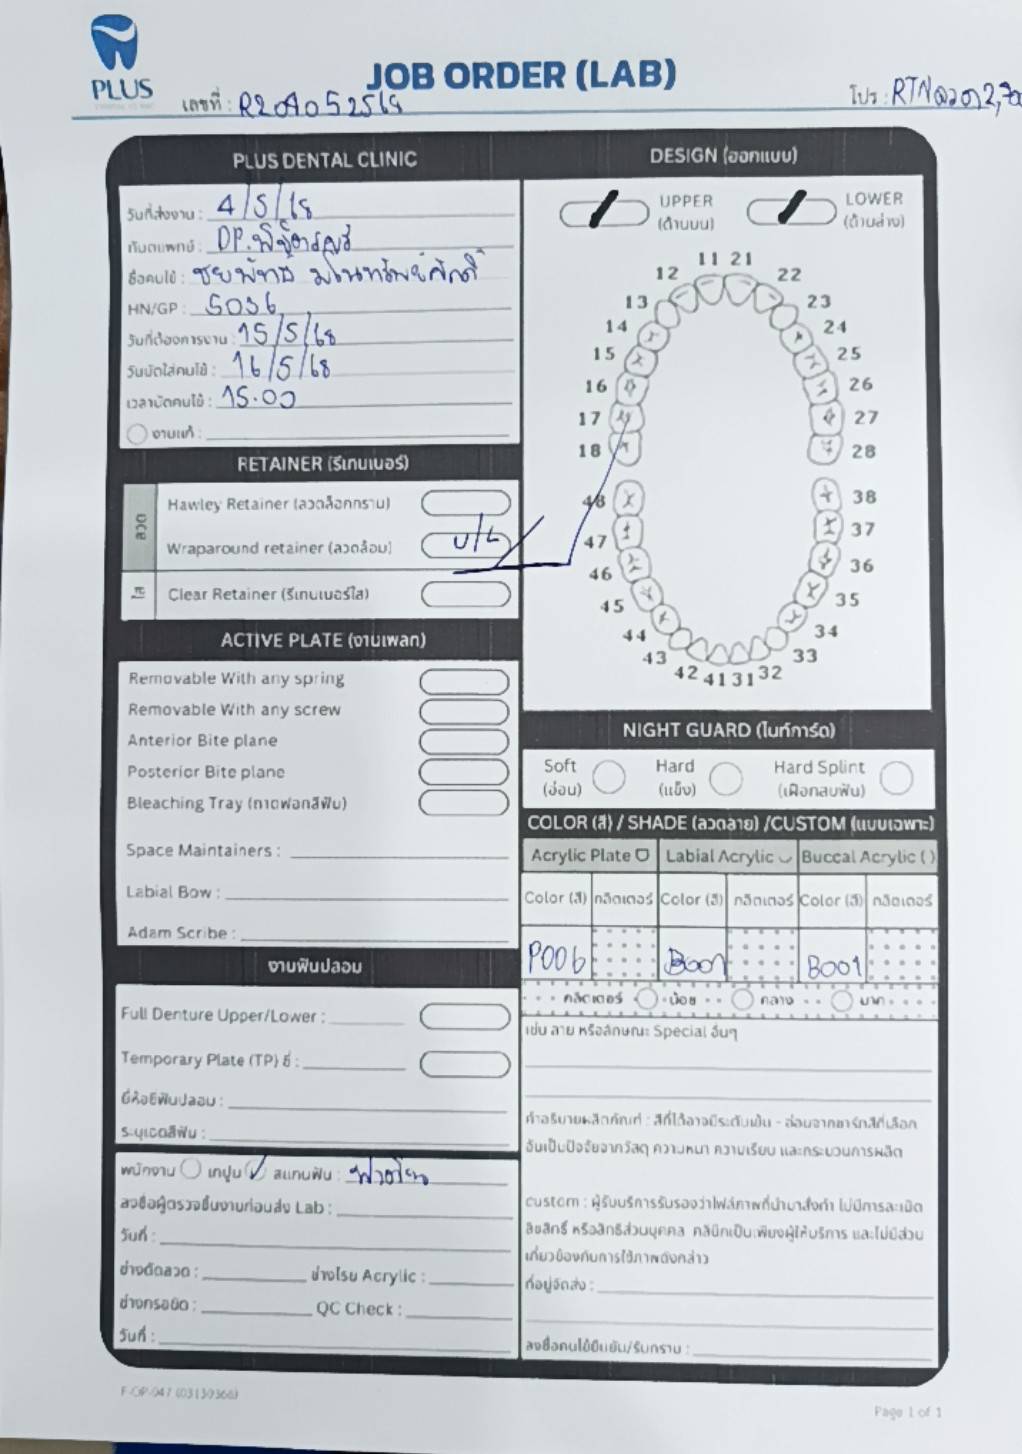 PLUS
JOB ORDER (LAB)
เลขที่ : R204052568
โปร : RTNลวด 2,
PLUS DENTAL CLINIC
วันที่ส่งงาน : 4/5/68
ทันตแพทย์ : DP.
ชื่อคนไข้ :
HN/GP : 5036
วันที่ต้องการงาน : 15/5/68
วันนัดใส่คนไข้ : 16/5/68
เวลานัดคนไข้ : 15.00
งานแก้ :
RETAINER (รีเทนเนอร์)
ลวด
Hawley Retainer (ลวดล็อกกราม)
Wraparound retainer (ลวดล้อม) U/L
ใส
Clear Retainer (รีเทนเนอร์ใส)
ACTIVE PLATE (งานเพลท)
Removable With any spring
Removable With any screw
Anterior Bite plane
Posterior Bite plane
Bleaching Tray (ถาดฟอกสีฟัน)
Space Maintainers :
Labial Bow :
Adam Scribe :
งานฟันปลอม
Full Denture Upper/Lower :
Temporary Plate (TP) ซี่ :
ยี่ห้อซี่ฟันปลอม :
ระบุเฉดสีฟัน :
พนักงาน เทปูน สแกนฟัน :
ลงชื่อผู้ตรวจชิ้นงานก่อนส่ง Lab :
วันที่ :
ช่างดัดลวด : ช่างโรย Acrylic :
ช่างกรอขัด : QC Check :
วันที่ :
DESIGN (ออกแบบ)
UPPER (ด้านบน)
LOWER (ด้านล่าง)
11 21
12 22
13 23
14 24
15 25
16 26
17 27
18 28
48 38
47 37
46 36
45 35
44 34
43 33
42 41 31 32
NIGHT GUARD (ไนท์การ์ด)
Soft (อ่อน)
Hard (แข็ง)
Hard Splint (เฝือกสบฟัน)
COLOR (สี) / SHADE (ลวดลาย) /CUSTOM (แบบเฉพาะ)
Acrylic Plate Labial Acrylic Buccal Acrylic ( )
Color (สี) กลิตเตอร์ Color (สี) กลิตเตอร์ Color (สี) กลิตเตอร์
P006 B001 B001
กลิตเตอร์ น้อย กลาง มาก
เช่น ลาย หรือลักษณะ Special อื่นๆ
คำอธิบายผลิตภัณฑ์ : สีที่ได้อาจมีระดับเข้ม - อ่อนจากชาร์ทสีที่เลือก
อันเป็นปัจจัยจากวัสดุ ความหนา ความเรียบ และกระบวนการผลิต
custom : ผู้รับบริการรับรองว่าไฟล์ภาพที่นำมาสั่งทำ ไม่มีการละเมิด
ลิขสิทธิ์ หรือสิทธิส่วนบุคคล คลินิกเป็นเพียงผู้ให้บริการ และไม่มีส่วน
เกี่ยวข้องกับการใช้ภาพดังกล่าว
ที่อยู่จัดส่ง :
ลงชื่อคนไข้ยืนยัน/รับทราบ :
Page 1 of 1